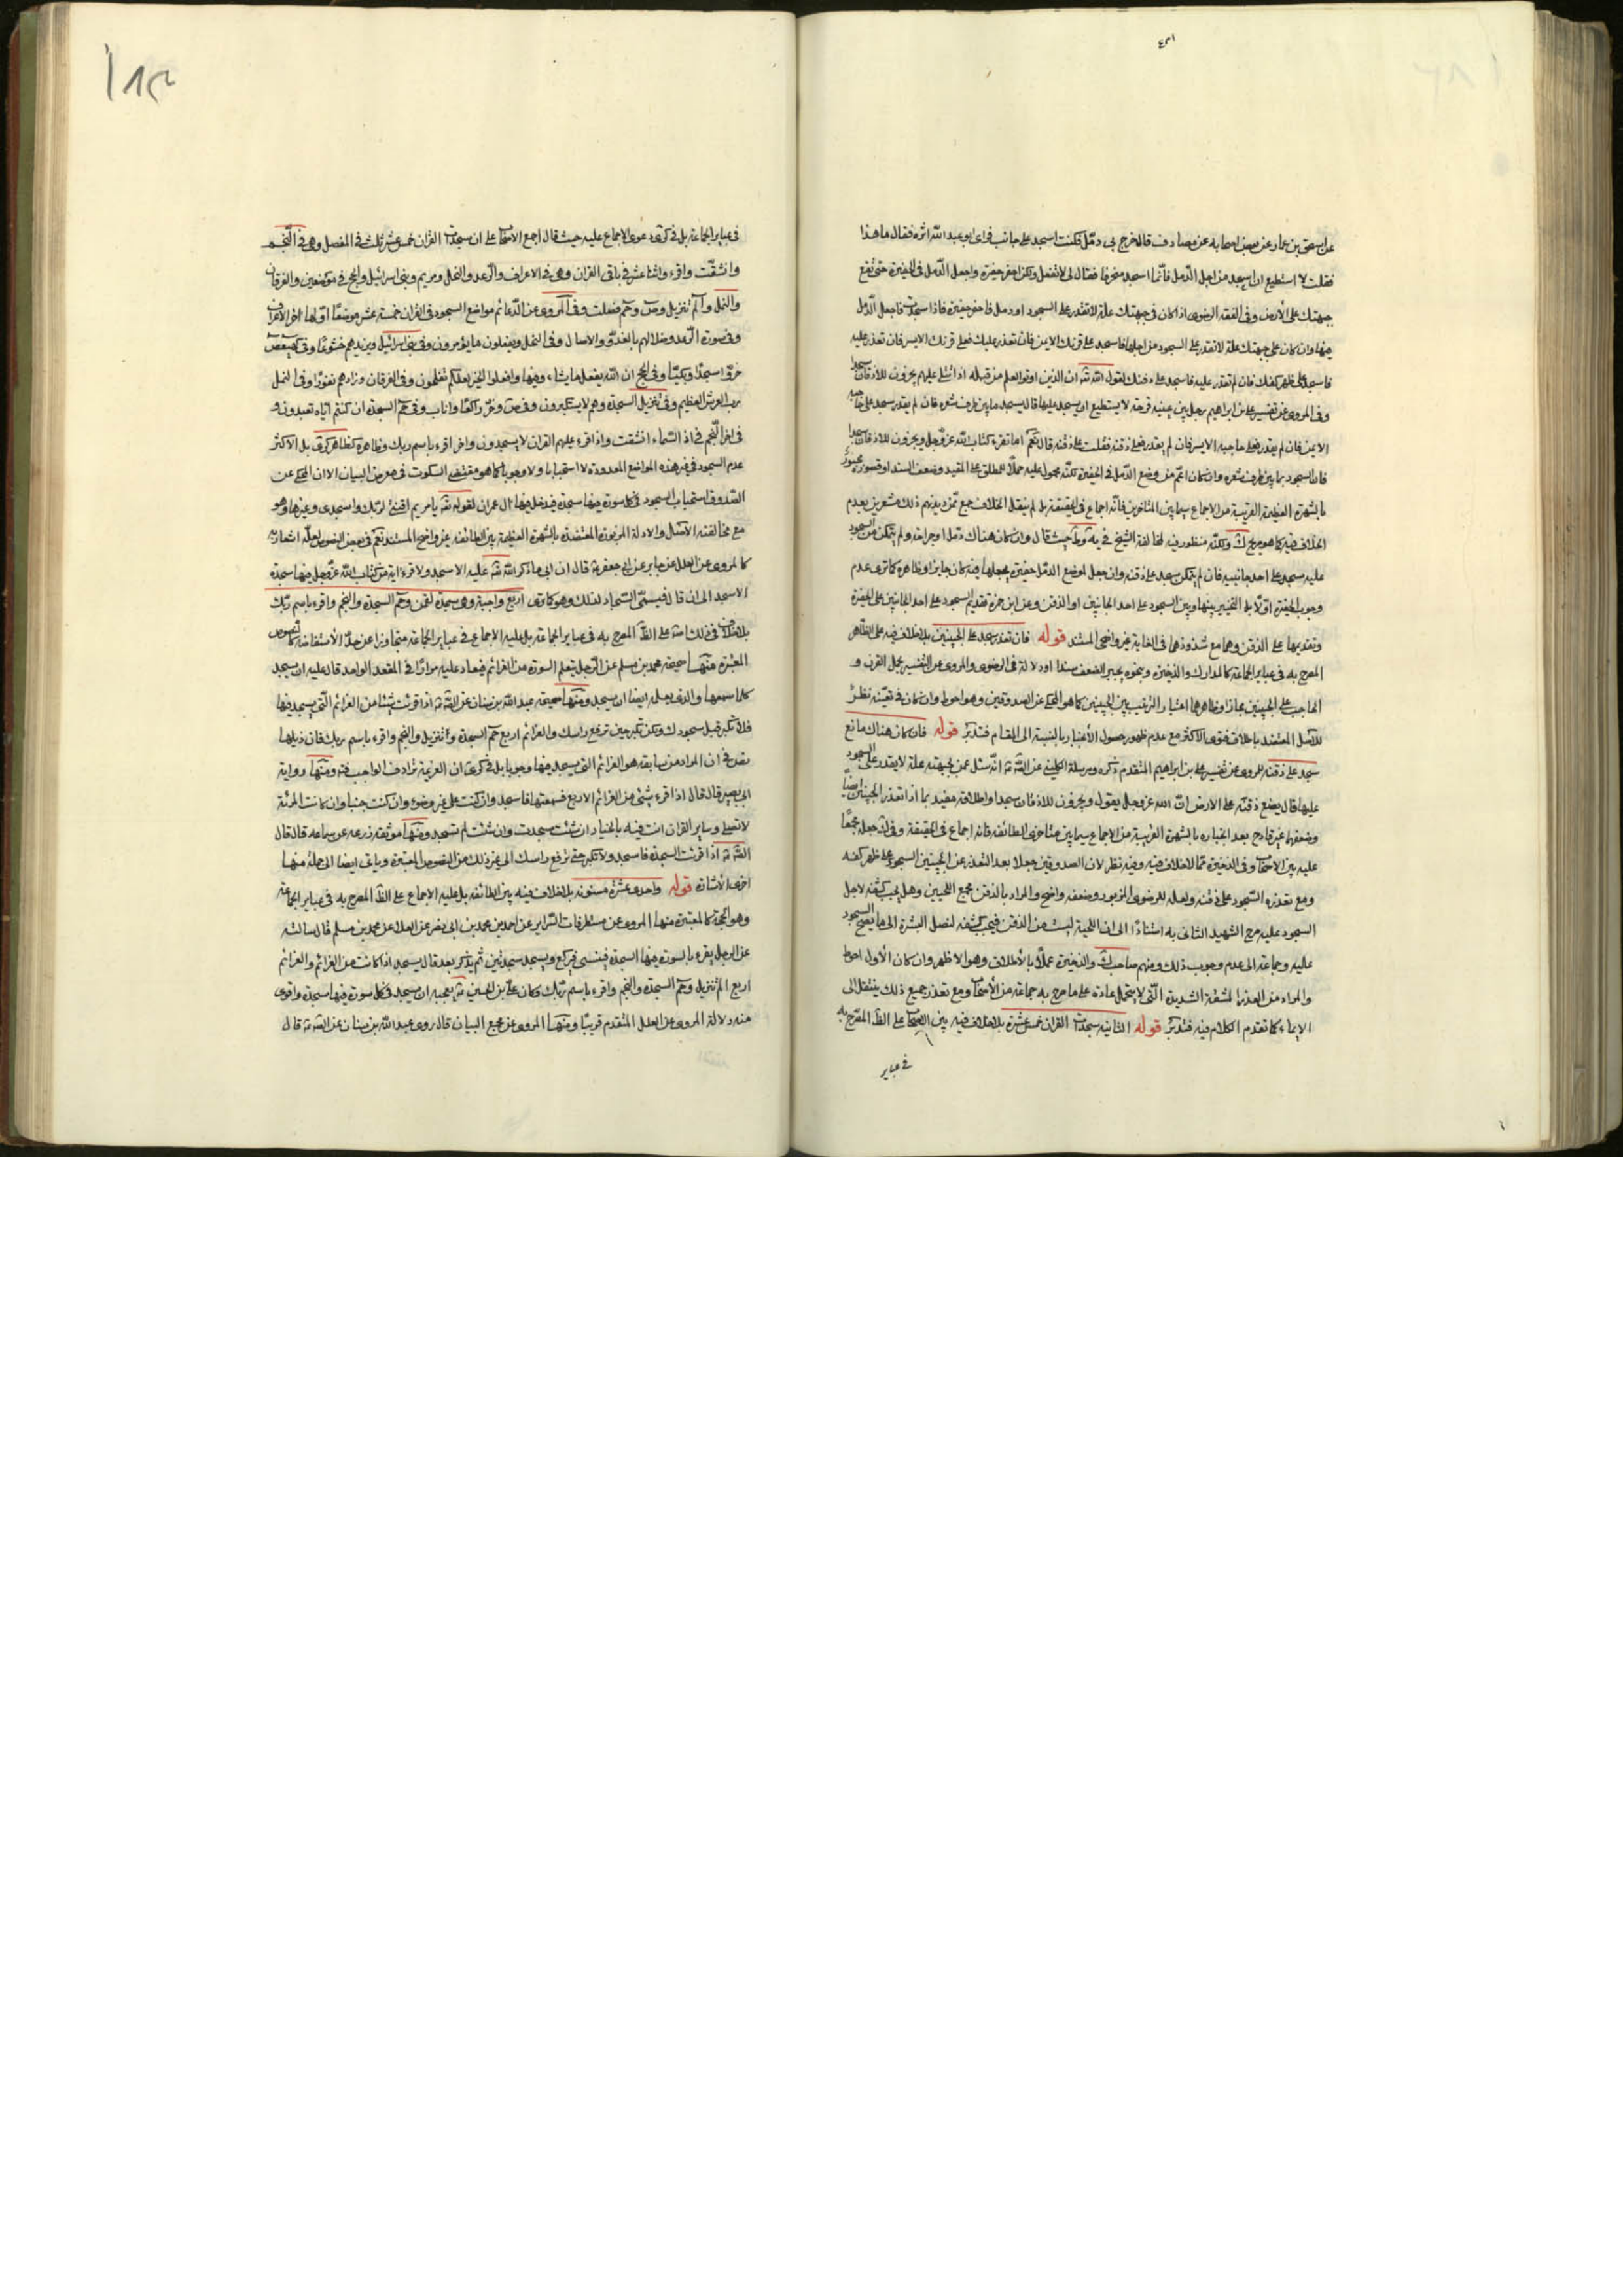 عن اسحق بن عمار عن بعض اصحابه عن مصادف قال خرج بى دمّل فكنت اسجد على جانب فراى ابو عبد اللّه اثره فقال ما هذا
فقلت لا استطيع ان اسجد من اجل الدّمل فانّما اسجد منحرفا فقال لى لا تفعل ولكن احفر حفيرة واجعل الدّمل فى الحفيرة حتى تقع
جبهتك على الأرض وفى الفقه الرضوى اذا كان فى جبهتك علّة لا تقدر على السجود او دمل فاحفر حفيرة فاذا سجدت فاجعل الدّمل
فيها وان كان على جبهتك علة لا تقدر على السجود من اجلها فاسجد على قرنك الايمن فان تعذر عليك فعلى قرنك الايسر فان تعذر عليه
فاسجد على ظهر كفك فان لم تقدر عليه فاسجد على ذقنك لقول اللّه تع ان الذين اوتوا العلم من قبله اذا تتلى عليهم يخرون للاذقان سجدا
وفى المروى عن تفسير على بن ابراهيم رجل بين عينيه قرحة لا يستطيع ان يسجد عليها قال يسجد ما بين طرف شعره فان لم يقدر سجد على حاجبه
الايمن فان لم يقدر فعلى حاجبه الايسر فان لم يقدر فعلى ذقنه فقلت على ذقنه قال نعم اما تقرء كتاب اللّه عز وجل ويخرون للاذقان سجدا
فان السجود ما بين طرف شعره وان كان اعم من وضع الدّمل فى الحفيرة لكنّه محمول عليه حملًا للمطلق على المقيد وضعف السند او قصوره مجبور
بالشهرة العظيمة القريبة من الاجماع سيما بين المتاخرين فانّه اجماع فى الحقيقة بل لم ينقل الخلاف جمع ممّن ديدنهم ذلك مشعرين بعدم
الخلاف فيه كما هو صريح ك ولكنّه منظور فيه لمخالفة الشيخ فى يه وط حيث قال وان كان هناك دمل او جراحة ولم يتمكن من السجود
عليه سجد على احد جانبيه فان لم يتمكن سجد على ذقنه وان جعل لموضع الدمّل حفيرة يجعلها فيه كان جايزا وظاهره كما ترى عدم
وجوب الحفيرة اوّلًا بل التخيير بينها وبين السجود على احد الجانبين او الذقن وعن ابن حمزة تقديم السجود على احد الجانبين على الحفيرة
وتقديمها على الذقن وهما مع شذوذهما فى الغاية غير واضحى المستند قوله فان تعذر سجد على الجبينين بلا خلاف فيه على الظاهر
المصرح به فى عباير الجماعة كالمدارك والذخيرة ونحوه يجبر الضعف سندا او دلالة فى الرضوى والمروى عن التفسير بحمل القرن و
الحاجب على الجبينين مجازا وظاهرهما اعتبار الترتيب بين الجبينين كما هو المحكى عن الصدوقين وهو احوط وان كان فى تعيّنه نظر
للاصل المعتضد باطلاق فتوى الاكثر مع عدم ظهور حصول الأعتبار بالنسبة الى المقام فتدبّر قوله فان كان هناك مانع
سجد على ذقنه للمروى عن تفسير على بن ابراهيم المتقدم ذكره ومرسلة الكلينى عن الصّ ع انّه سئل عمن بجبهته علة لا يقدر على السجود
عليها قال يضع ذقنه على الارض انّ اللّه عز وجل يقول ويخرون للاذقان سجدا واطلاقه مقيد بما اذا تعذر الجبينان ايضا
وضعفهما غير قادح بعد انجباره بالشهرة القريبة من الاجماع سيما بين متاخرى الطائفة فانه اجماع فى الحقيقة وفى ك جعله مجمعا
عليه بين الاصحاب وفى الذخيرة ممّا لا خلاف فيه وفيه نظر لان الصدوقين جعلا بعد التعذر عن الجبينين السجود على ظهر كفه
ومع تعذره السّجود على ذقنه ولعله للرضوى المزبور وضعفه واضح والمراد بالذقن مجمع اللحيين وهل يجب كشفه لاجل
السجود عليه صرح الشهيد الثانى به استنادًا الى ان اللحية ليست من الذقن فيجب كشفه لتصل البشرة الى ما يصح السجود
عليه وجماعة الى عدم وجوب ذلك ومنهم صاحب ك والذخيرة عملًا بالأطلاق وهو الاظهر وان كان الأول احوط
والمراد من العذر المشقة الشديدة الّتى لا يتحمل عادة على ما صرح به جماعة من الأصحاب ومع تعذر جميع ذلك ينتقل الى
الايماء كما تقدم الكلام فيه فتدبّر قوله الثانية سجدات القران خمس عشرة بلا خلاف فيه بين الاصحاب على الظّ المصّرح به
فى عباير
فى عباير الجماعة بل فى كرى دعوى الاجماع عليه حيث قال اجمع الاصحاب على ان سجدات القران خمس عشر ثلث فى المفصل وهى فى النّجم
وانشقّت واقرء واثنا عشر فى باقى القران وهى فى الاعراف والرّعد والنحل ومريم وبنى اسرائيل والحج فى موضعين والفرقان
والنمل والم تنزيل وص وحم فصلت وفى المروى عن الدّعائم مواضع السجود فى القران خمسة عشر موضعًا اوّلها اخر الأعراف
وفى سورة الرّعد وظلالهم بالغدوّ والاصال وفى النحل ويفعلون ما يؤمرون وفى بنى اسرائيل ويزيدهم خشوعًا وفى كهيعص
خرّوا سجدًا وبكيّا وفى الحج ان اللّه يفعل ما يشاء وفيها وافعلوا الخير لعلكم تفلحون وفى الفرقان وزادهم نفورًا وفى النمل
رب العرش العظيم وفى تنزيل السجدة وهم لا يستكبرون وفى ص وخرّ راكعًا واناب وفى حم السجدة ان كنتم ايّاه تعبدون و
فى اخر النّجم وفى اذا السّماء انشقت واذا قرء عليهم القران لا يسجدون واخر اقرء باسم ربك وظاهره كظاهر كرى بل الاكثر
عدم السجود فى غير هذه المواضع المعدودة لا استحبابا ولا وجوبا كما هو مقتضى السكوت فى معرض البيان الا ان المحكى عن
الصّدوق استحباب السجود فى كل سورة فيها سجدة فيدخل فيها ال عمران لقوله تع يا مريم اقنتى لربّك واسجدى وغيرها وهو
مع مخالفته الأصل والادلة المزبورة المعتضدة بالشهرة العظيمة بين الطائفة غير واضح المستند نعم فى بعض النصوص لعلّه اشعار به
كالمروى عن العلل عن جابر عن ابى جعفر ع قال ان ابى ما ذكر للّه نعمة عليه الا سجد ولا قرء اية من كتاب اللّه عز وجل فيها سجدة
الا سجد الى ان قال فيسمّى السّجاد لذلك وهو كما ترى اربع واجبة وهى سجدة لقمن وحم السجدة والنجم واقرء باسم ربّك
بلا خلاف فى ذلك على الظّ المصرح به فى عباير الجماعة بل عليه الاجماع فى عباير الجماعة متجاوزا عن حدّ الأستفاضة كالنصوص
المعتبرة منها صحيحة محمد بن مسلم عن الرّجل يتعلم السورة من العزائم فيعاد عليه مرارًا فى المقعد الواحد قال عليه ان يسجد
كلما سمعها والذى يعلمه ايضا ان يسجد ومنها صحيحة عبد اللّه بن سنان عن الصّ ع اذا قرئت شيئا من العزائم الّتى يسجد فيها
فلا تكبر قبل سجودك ولكن تكبر حين ترفع راسك والعزائم اربع حم السجدة والم تنزيل والنجم واقرء باسم ربك فان ذيلها
يقدح ان المراد من سابقه هو العزائم التى يسجد فيها وجوبا بل فى كرى ان العزيمة ترادف الواجب فتد ومنها رواية
ابى بصير قال قال اذا قرء بشئ من العزائم الاربع فسمعتها فاسجد وان كنت على غير وضوء وان كنت جنبا وان كانت المرئة
لا تصلى وساير القران انت فيه بالخيار ان شئت سجدت وان شئت لم تسجد ومنها موثقة زرعه عن سماعه قال قال
الصّ ع اذا قرئت السجدة فاسجد ولا تكبر حتى ترفع راسك الى غير ذلك من النصوص المعتبرة وياتى ايضا الى جملة منها
اخرى الأشارة قوله واحدى عشرة مسنونة بلا خلاف فيه بين الطائفة بل عليه الاجماع على الظّ المصرح به فى عباير الجماعة
وهو الحجة كالمعتبرة منها المروى عن مستطرفات السّراير عن احمد بن محمد بن ابى نصر عن العلا عن محمد بن مسلم قال سالته
عن الرجل يقرء بالسورة فيها السجدة فينسى فيركع ويسجد سجدتين ثم يذكر بعد قال يسجد اذا كانت من العزائم والعزائم
اربع الم تنزيل وحم السجدة والنجم واقرء باسم ربّك وكان علىّ بن الحسين ع يعجبه ان يسجد فى كل سورة فيها سجدة واقوى
منه دلالة المروى عن العلل المتقدم قريبًا ومنها المروى عن مجمع البيان قال روى عبد اللّه بن سنان عن الصّ ع قال